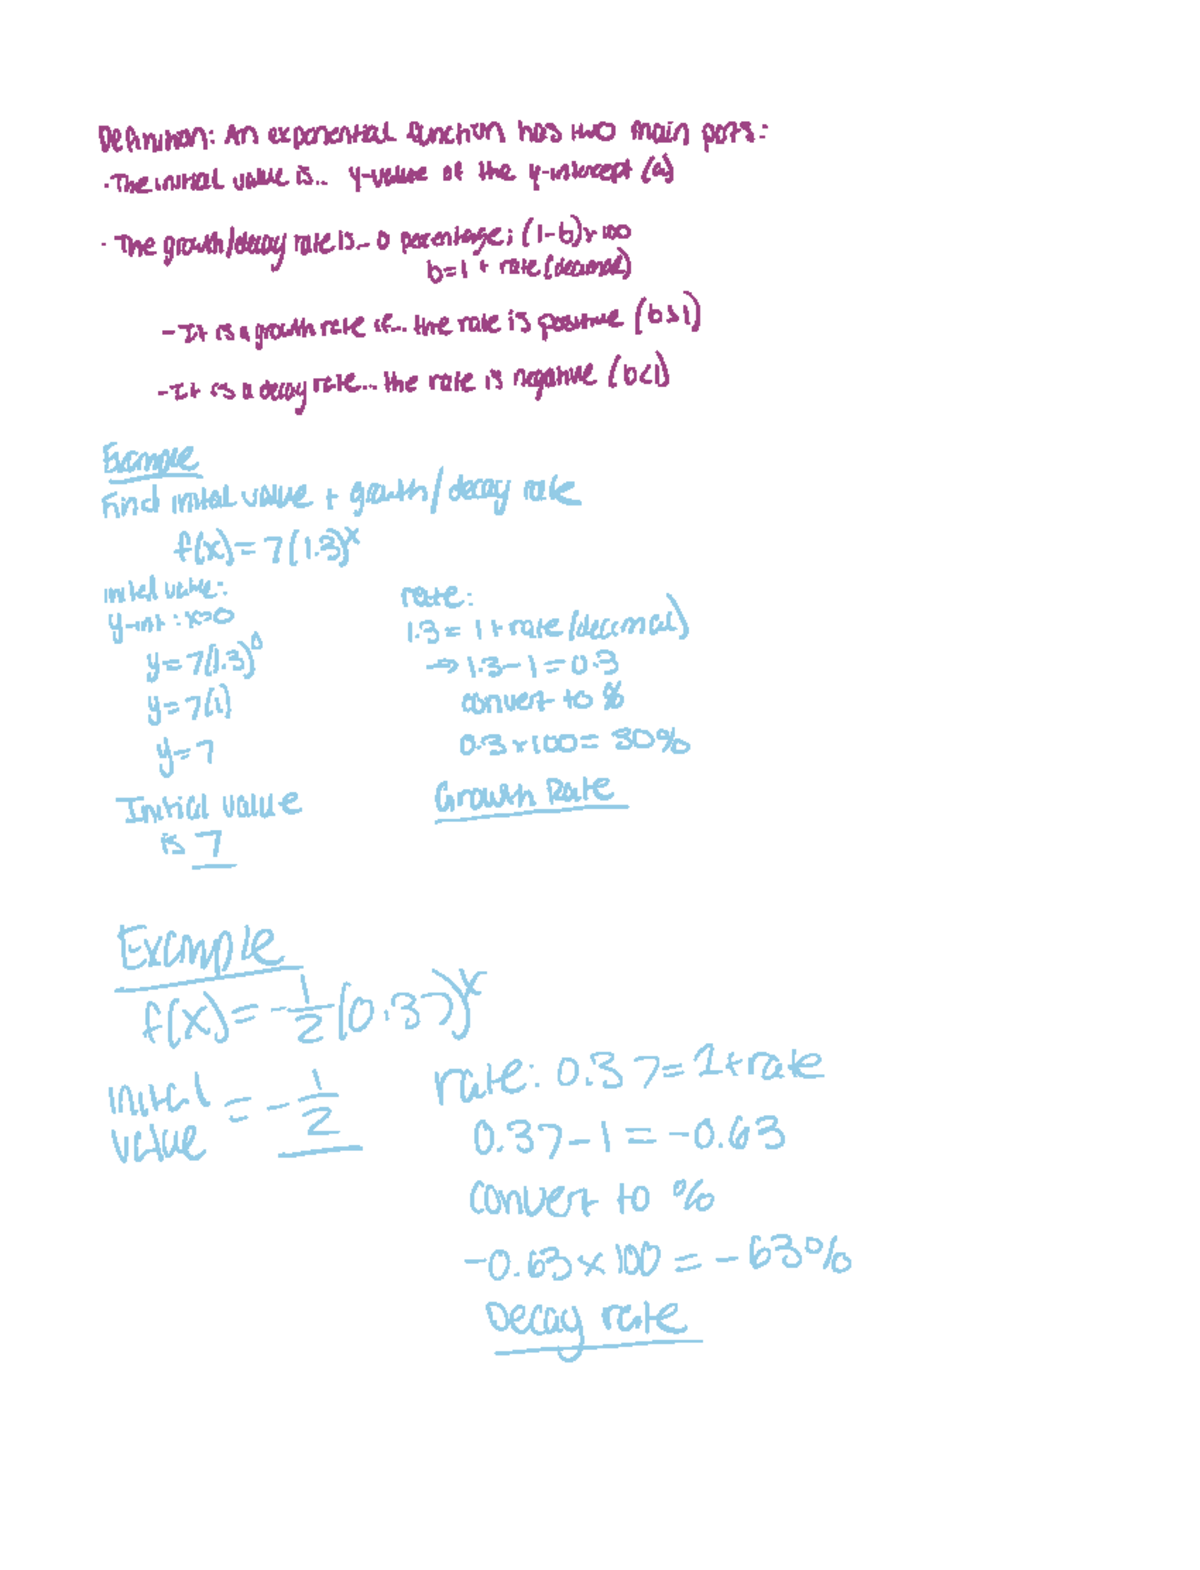 Definition: An exponential function has two main parts:
· The initial value is... y-value of the y-intercept (a)
· The growth/decay rate is... a percentage; (1-b)x100
b=1 + rate (decimal)
- It is a growth rate if... the rate is positive (b>1)
- It is a decay rate... the rate is negative (b<1)
Example
Find initial value + growth/decay rate
f(x) = 7(1.3)^x
initial value:
y-int : x=0
y = 7(1.3)^0
y = 7(1)
y = 7
Initial value
is 7
rate:
1.3 = 1 + rate (decimal)
→ 1.3 - 1 = 0.3
convert to %
0.3 x 100 = 30%
Growth Rate
Example
f(x) = -1/2 (0.37)^x
initial value = -1/2
rate: 0.37 = 1 + rate
0.37 - 1 = -0.63
convert to %
-0.63 x 100 = -63%
Decay rate